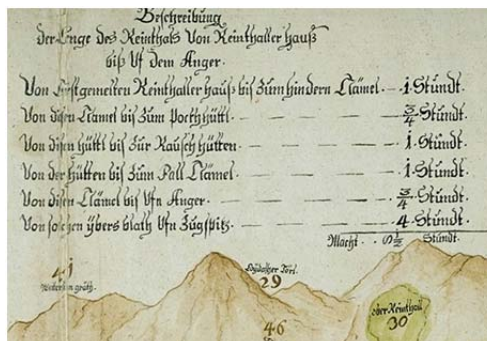 Beschreibung
der Enge des Reinthals Von Reinthaller hauß
biß Uf dem Anger.
Von Erstgemelten Reinthaller hauß bis zum hindern Clämel. - 1. Stundt.
Von disen Clämel bis zum Pockh hüttl - - - 3/4 Stundt.
Von disen hüttl bis zur Rausch hütten. - - - 1. Stundt.
Von der hütten bis zum Fall Clämel. - - - 1. Stundt.
Von disen Clämel bis Ufn Anger. - - - 3/4 Stundt.
Von solchen ybers blath Ufn Zugspitz. - - - 4 Stundt.
Macht. . 8 1/2 Stundt.
41
29
46
ober Reinthall
30